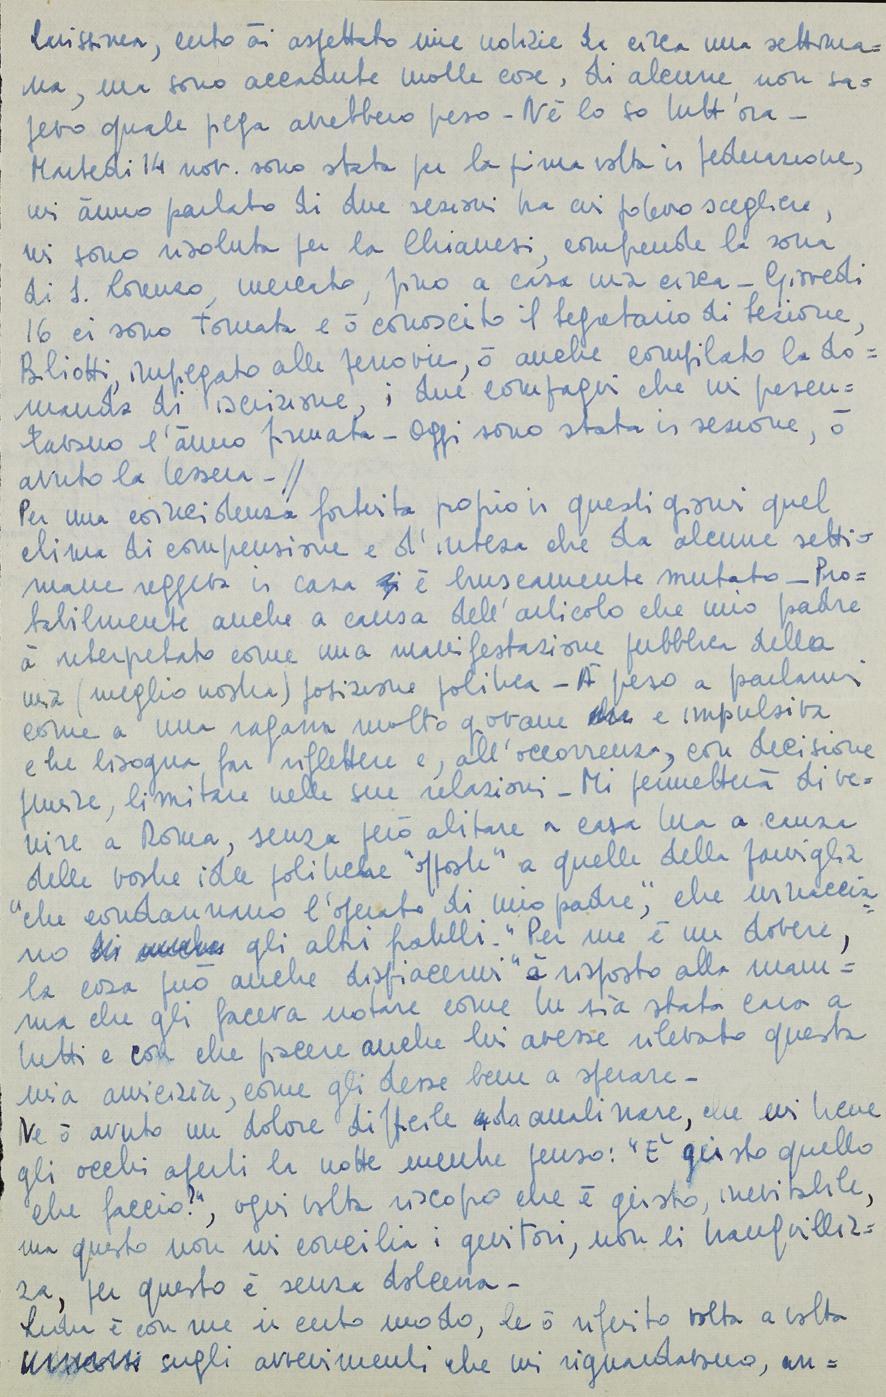 Luissima, certo ài aspettato mie notizie da circa una settima=
na, ma sono accadute molte cose, di alcune non sa=
pevo quale piega avrebbero preso - Né lo so tutt'ora -
Martedì 14 nov. sono stata per la prima volta in federazione,
mi ànno parlato di due sezioni tra cui potevo scegliere,
mi sono risoluta per la Chianesi, comprende la zona
di S. Lorenzo, mercato, fino a casa mia circa - Giovedì
16 ci sono tornata e ò conosciuto il segretario di sezione,
Biliotti, impiegato alle ferrovie, ò anche compilato la do=
manda di iscrizione, i due compagni che mi presen=
tavano l'ànno firmata - Oggi sono stata in sezione, ò
avuto la tessera - //
Per una coincidenza fortuita proprio in questi giorni quel
clima di comprensione e d'intesa che da alcune setti=
mane reggeva in casa è bruscamente mutato - Pro=
babilmente anche a causa dell'articolo che mio padre
à interpretato come una manifestazione pubblica della
mia (meglio nostra) posizione politica - À preso a parlarmi
come a una ragazza molto giovane e impulsiva
che bisogna far riflettere e, all'occorrenza, con decisione
punire, limitare nelle sue relazioni - Mi permetterà di ve=
nire a Roma, senza però abitare a casa tua a causa
delle vostre idee politiche "opposte" a quelle della famiglia
"che condannano l'operato di mio padre", che minaccia=
no gli altri fratelli. "Per me è un dovere,
la cosa può anche dispiacermi" à risposto alla mam=
ma che gli faceva notare come tu sia stata cara a
tutti e con che piacere anche lui avesse rilevato questa
mia amicizia, come gli desse bene a sperare -
Ne ò avuto un dolore difficile da analizzare, che mi tiene
gli occhi aperti la notte mentre penso: "È giusto quello
che faccio?", ogni volta riscopro che è giusto, inevitabile,
ma questo non mi concilia i genitori, non li tranquilliz=
za, per questo è senza dolcezza -
è con me in certo modo, le ò riferito volta a volta
sugli avvenimenti che mi riguardavano, an=